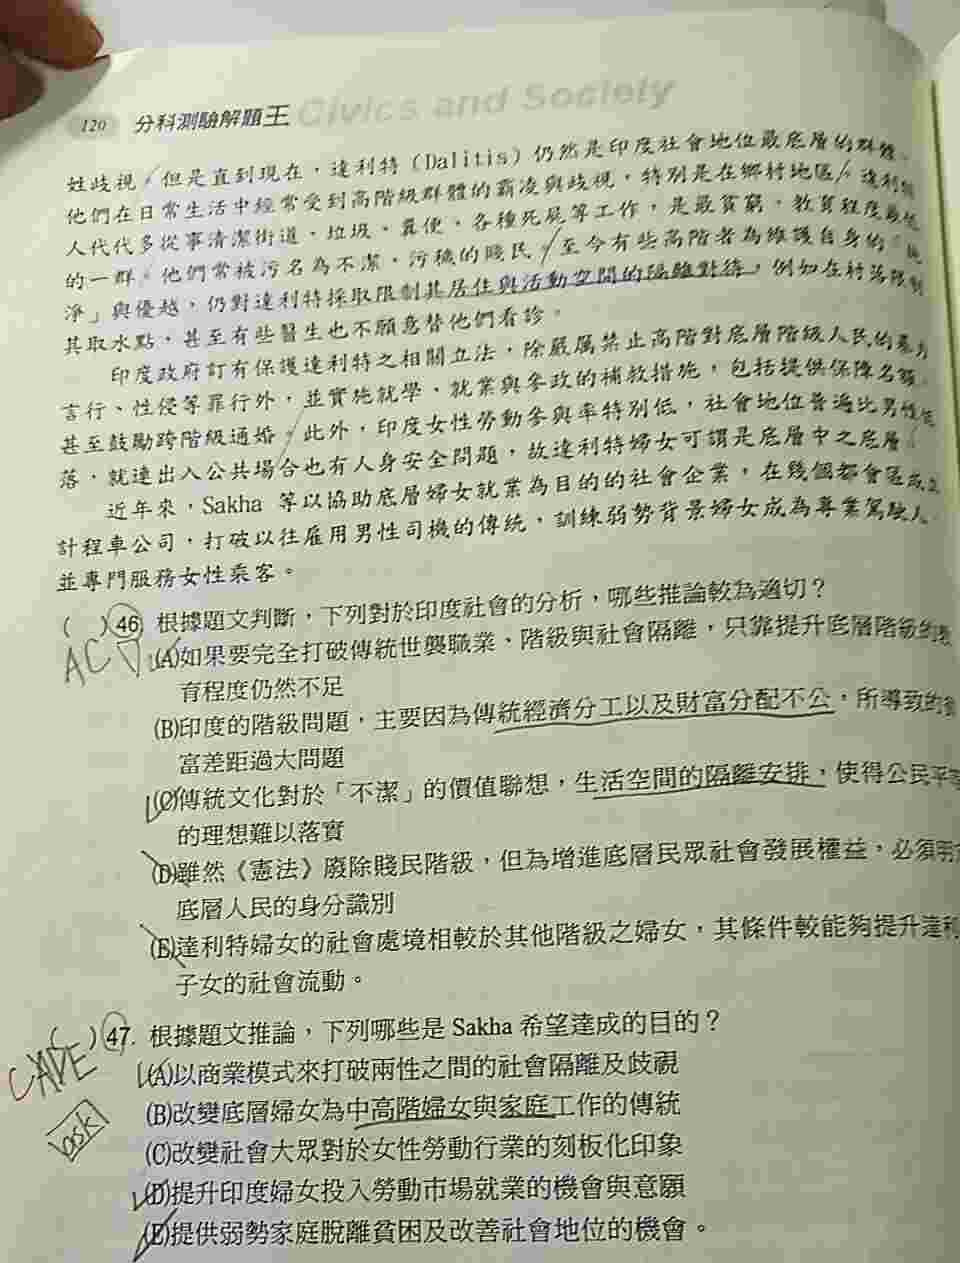 120 分科測驗解題王 Civics and Society
姓歧視。但是直到現在，達利特（Dalitis）仍然是印度社會地位最底層的群體，
他們在日常生活中經常受到高階級群體的霸凌與歧視，特別是在鄉村地區。達利特
人代代多從事清潔街道、垃圾、糞便、各種死屍等工作，是最貧窮、教育程度最低
的一群。他們常被污名為不潔、污穢的賤民。至今有些高階者為維護自身的「純
淨」與優越，仍對達利特採取限制其居住與活動空間的隔離對待，例如在村落限制
其取水點，甚至有些醫生也不願意替他們看診。
印度政府訂有保護達利特之相關立法，除嚴厲禁止高階對底層階級人民的暴力
言行、性侵等罪行外，並實施就學、就業與參政的補救措施，包括提供保障名額，
甚至鼓勵跨階級通婚。此外，印度女性勞動參與率特別低，社會地位普遍比男性低
落，就連出入公共場合也有人身安全問題，故達利特婦女可謂是底層中之底層。
近年來，Sakha 等以協助底層婦女就業為目的的社會企業，在幾個都會區成立
計程車公司，打破以往雇用男性司機的傳統，訓練弱勢背景婦女成為專業駕駛人，
並專門服務女性乘客。
( ) 46. 根據題文判斷，下列對於印度社會的分析，哪些推論較為適切？
AC
(A)如果要完全打破傳統世襲職業、階級與社會隔離，只靠提升底層階級的教
育程度仍然不足
(B)印度的階級問題，主要因為傳統經濟分工以及財富分配不公，所導致的貧
富差距過大問題
(C)傳統文化對於「不潔」的價值聯想，生活空間的隔離安排，使得公民平等
的理想難以落實
(D)雖然《憲法》廢除賤民階級，但為增進底層民眾社會發展權益，必須明
底層人民的身分識別
(E)達利特婦女的社會處境相較於其他階級之婦女，其條件較能夠提升達利
子女的社會流動。
( ) 47. 根據題文推論，下列哪些是 Sakha 希望達成的目的？
CADE
(A)以商業模式來打破兩性之間的社會隔離及歧視
ask
(B)改變底層婦女為中高階婦女與家庭工作的傳統
(C)改變社會大眾對於女性勞動行業的刻板化印象
(D)提升印度婦女投入勞動市場就業的機會與意願
(E)提供弱勢家庭脫離貧困及改善社會地位的機會。